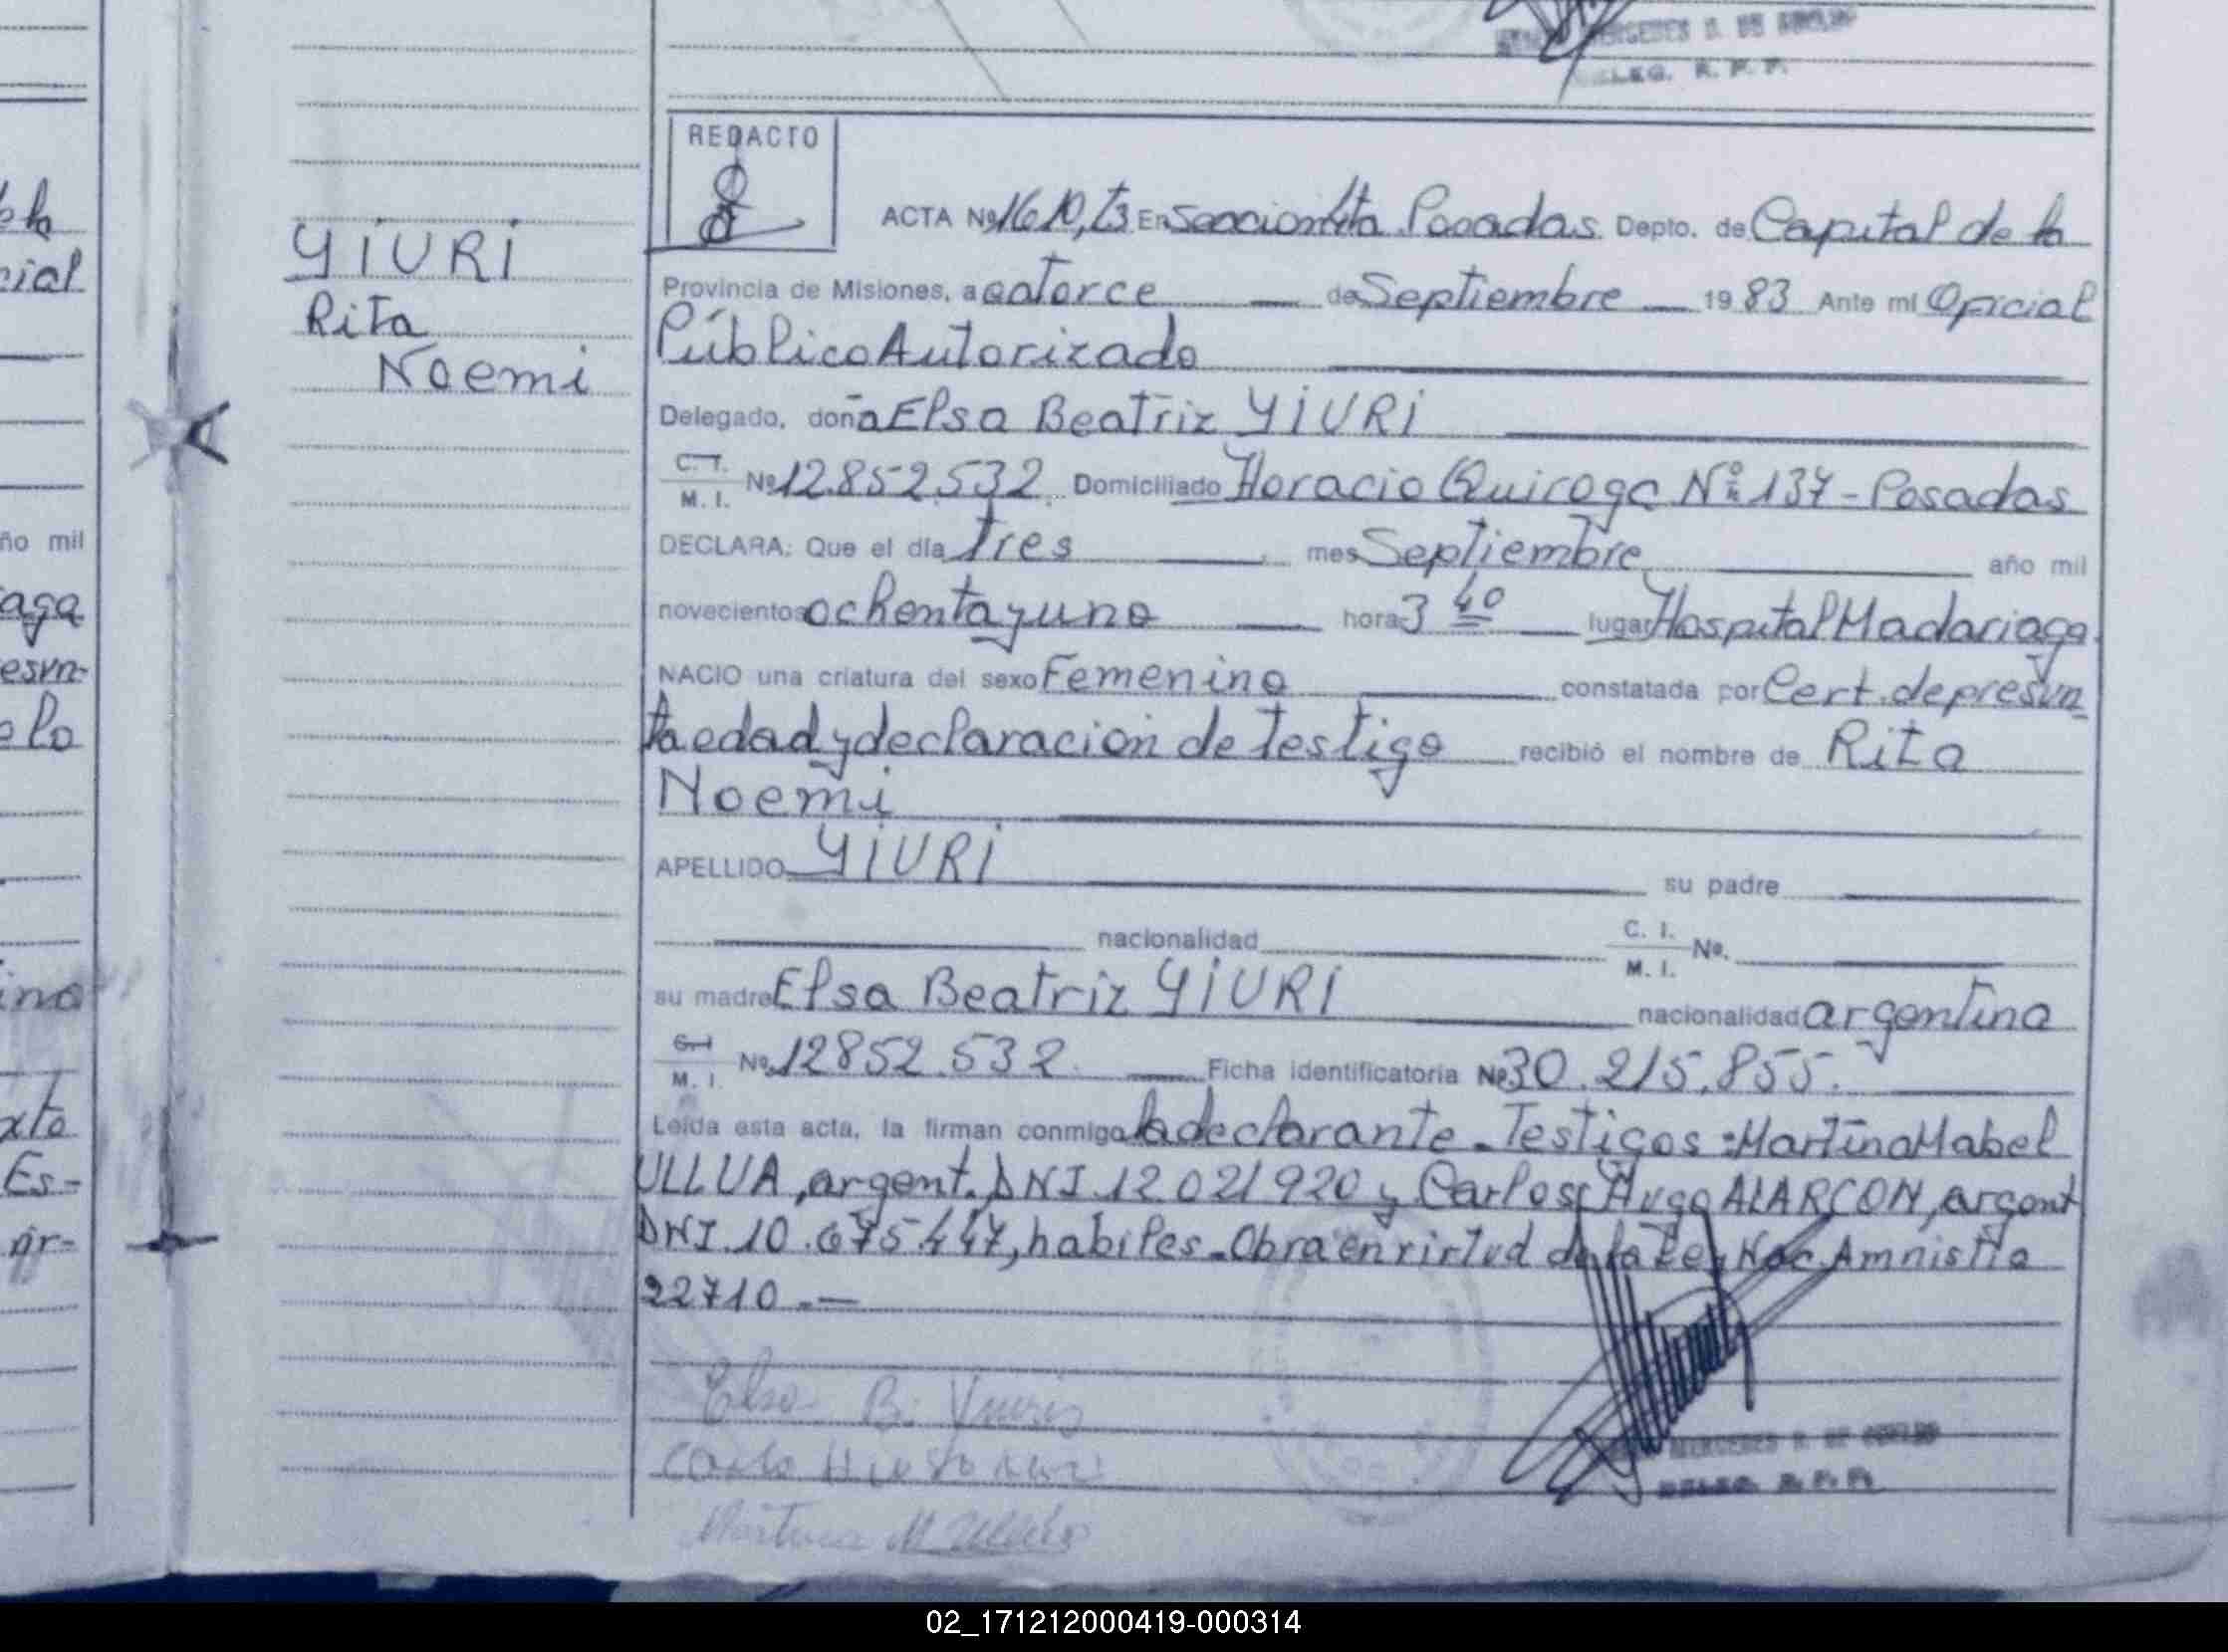 MERCEDES
DELEG. R. P. P.
REDACTO
ACTA Nº 1610, T3 En Sección Posadas Depto. de Capital de la
Provincia de Misiones, a catorce de Septiembre 19 83 Ante mí Oficial
Público Autorizado
Delegado, doña Elsa Beatriz YIURI
C. I. M. I. Nº 12.852.532 Domiciliado Horacio Quiroga Nº 137 - Posadas
DECLARA: Que el día tres mes Septiembre año mil
novecientos ochenta y uno hora 3 40 lugar Hospital Madariaga
NACIO una criatura del sexo Femenino constatada por Cert. de presun
ta edad y declaración de testigo recibió el nombre de Rita
Noemi
APELLIDO YIURI su padre
nacionalidad C. I. M. I. No.
su madre Elsa Beatriz YIURI nacionalidad argentina
M. I. No. 12852.532 Ficha identificatoria Nº 30.215.855.
Leída esta acta, la firman conmigo la declarante - Testigos: Martina Mabel
ULLUA, argent. DNI 12021920 y Carlos Hugo ALARCON, argent
DNI. 10.675.447, hábiles - Obra en virtud de la Ley Nac. Amnistía
22710.-
Elsa B. Yiuri
Carlos Hugo
Martina M
MERCEDES
DELEG. R. P. P.
YIURI
Rita
Noemi
de la
cial
año mil
aga
esun-
lo
ina
xta
Es-
Ar-
02_171212000419-000314